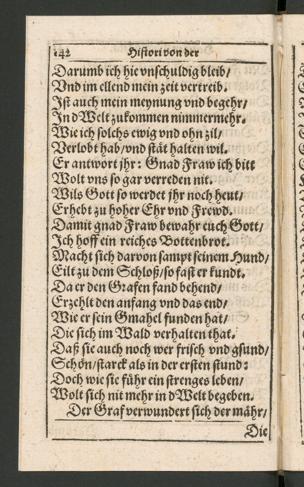 142 Histori von der
Darumb ich hie vnschuldig bleib/
Vnd im ellend mein zeit vertreib.
Ist auch mein meynung vnd begehr/
In d Welt zukommen nimmermehr.
Wie ich solchs ewig vnd ohn zil/
Verlobt hab/vnd stät halten wil.
Er antwort jhr: Gnad Fraw ich bitt
Wolt vns so gar verreden nit.
Wils Gott so werdet jhr noch heut/
Erhebt zu hoher Ehr vnd Frewd.
Damit gnad Fraw bewahr euch Gott/
Ich hoff ein reiches Bottenbrot.
Macht sich darvon sampt seinem Hund/
Eilt zu dem Schloß/so fast er kundt.
Da er den Grafen fand behend/
Erzehlt den anfang vnd das end/
Wie er sein Gmahel funden hat/
Die sich im Wald verhalten that.
Daß sie auch noch wer frisch vnd gsund/
Schön/starck als in der ersten stund:
Doch wie sie führ ein strenges leben/
Wolt sich nit mehr in d Welt begeben.
Der Graf verwundert sich der mähr/
Die